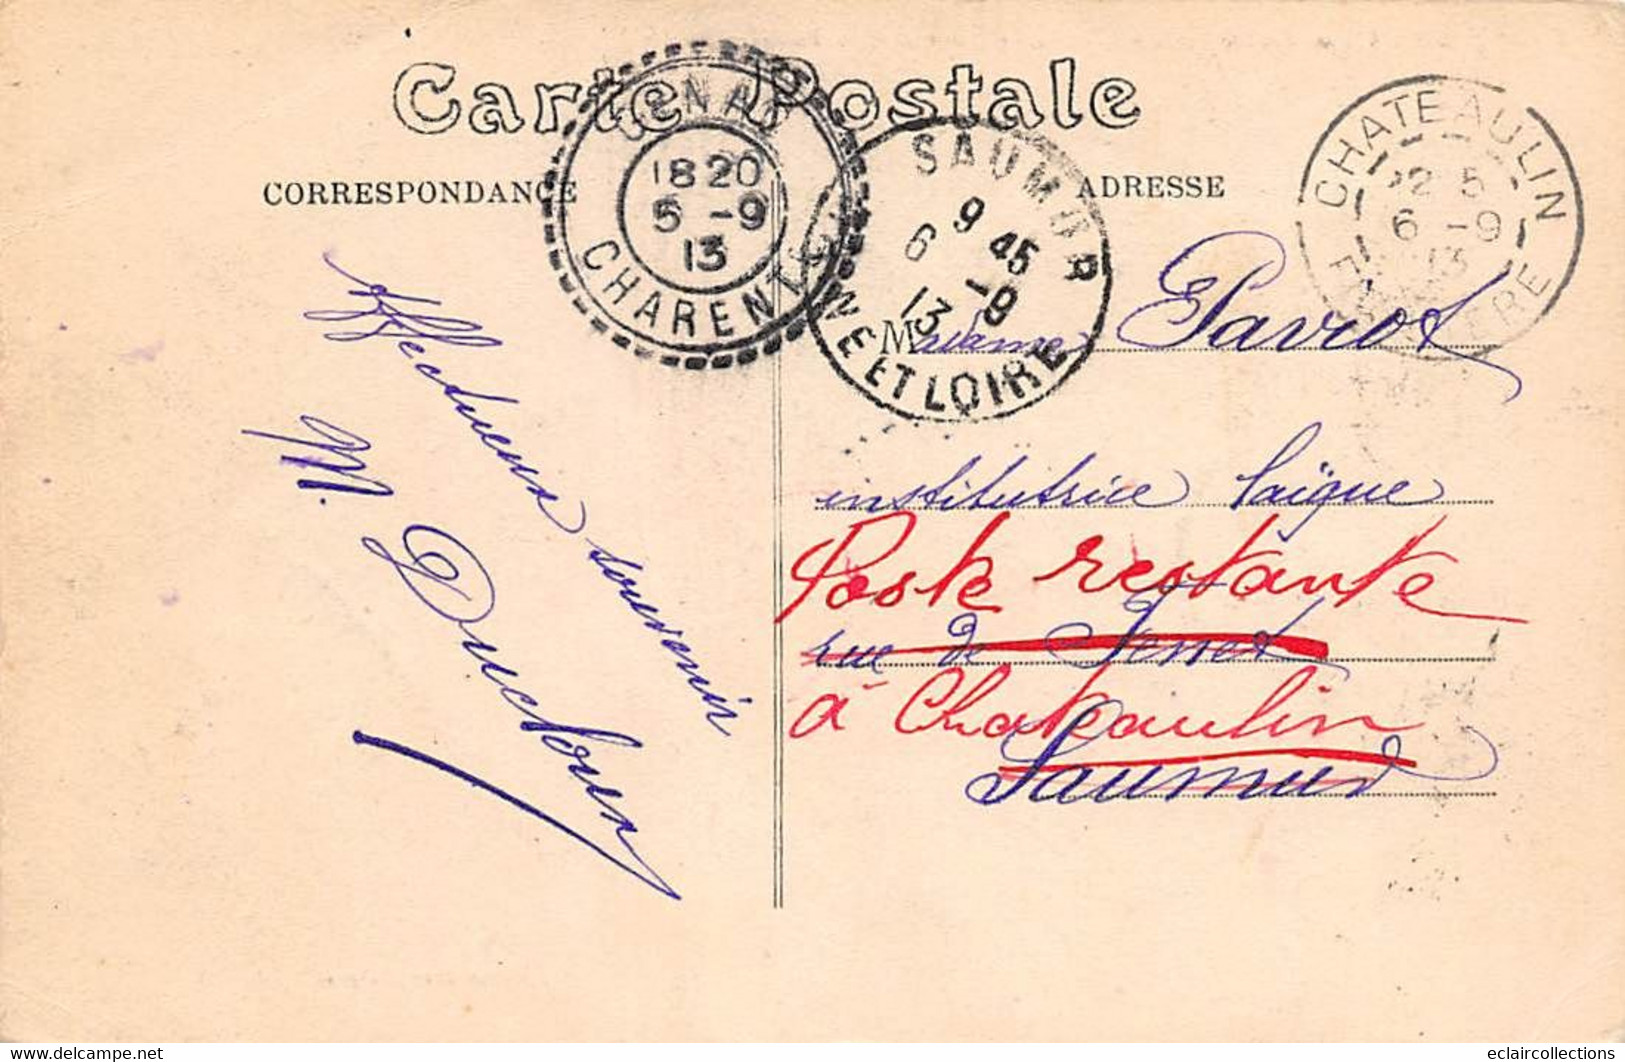 Carte Postale
CORRESPONDANCE
ADRESSE
18 20
5 -9
13
CHARENTE
SAUMUR
9 45
6 -9
13
NE ET LOIRE
CHATEAULIN
2 5
6 -9
13
Affectueux souvenir
M. Ductour
Madame Pavrot
institutrice laïque
Poste restante
rue de
à Chateaulin
Saumur
eclaircollections